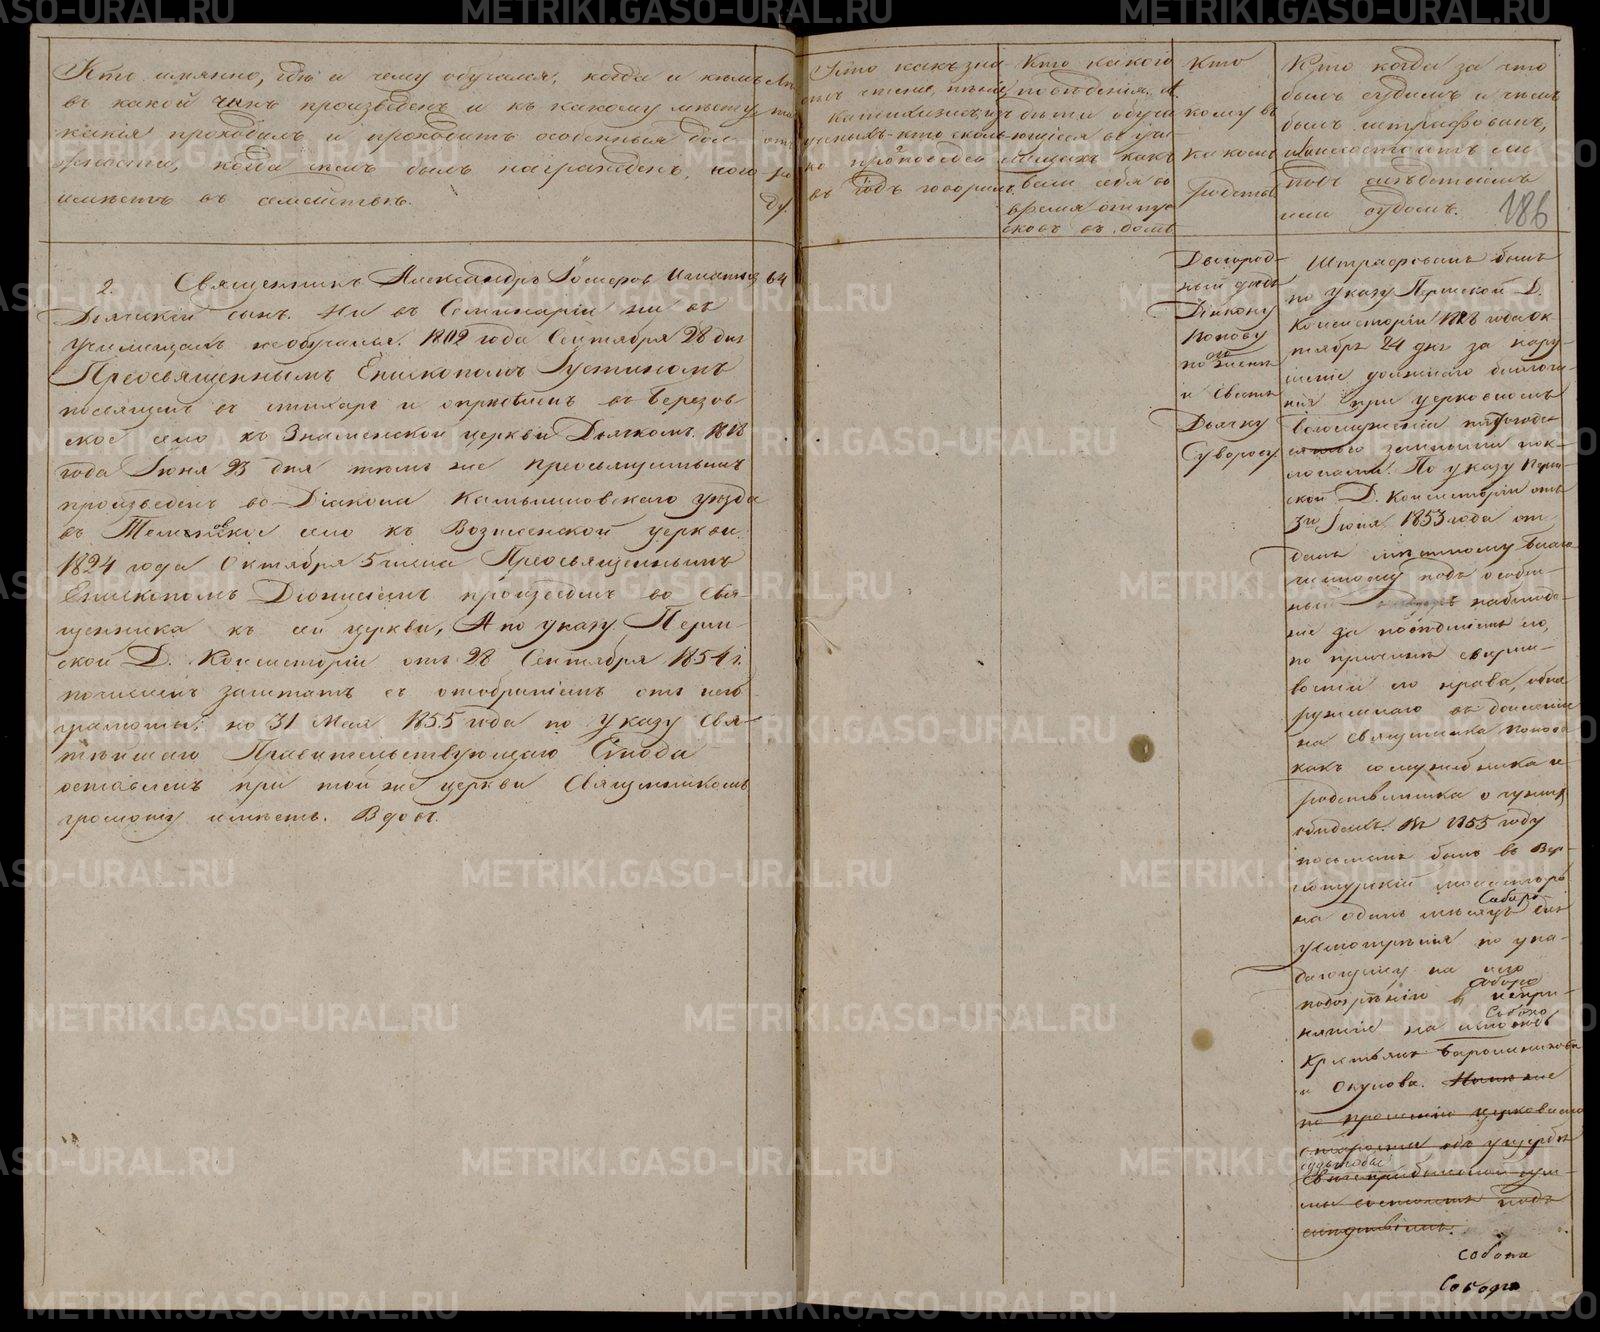 METRIKI.GASO-URAL.RU
Кто имянно, гдѣ и чему обучался, когда и кѣмъ
въ какой чинъ произведенъ и къ какому мѣсту
какія проходилъ и проходитъ особенныя дол-
жности, когда чемъ былъ награжденъ, кого
имѣетъ въ семействѣ.
Лѣ
та
отъ
ро
ду.
Кто какъ зна
етъ чтеніе, пѣніе
катихизисъ, изъ
ученыхъ-кто сколь
ко проповѣдей
въ годъ говорилъ
Кто какого
поведенія. А
дѣти обуча
ющіеся въ учи
лищахъ какъ
вели себя во
время отпу
сковъ въ домъ
Кто
кому въ
какомъ
родствѣ
Кто когда за что
былъ судимъ и чѣмъ
былъ штрафованъ,
и не состоитъ ли
подъ слѣдствіемъ
или судомъ.
186
2. Священникъ Александръ Гомеровъ Игнатія 64
Дьяческій сынъ. Ни въ Семинаріи ни въ
училищахъ не обучался. 1802 года Сентября 28 дня
Преосвященнымъ Епископомъ Іустиномъ
посвященъ въ стихарь и опредѣленъ въ Березов
ское село къ Знаменской церкви Дьячкомъ. 1818
года Іюня 23 дня тѣмъ же Преосвященнымъ
произведенъ во Діакона Камышловскаго уѣзда
въ село къ Вознесенской церкви.
1824 года Октября 5 числа Преосвященнымъ
Епископомъ Діонисіемъ произведенъ во Свя-
щенника къ сей церкви, А по указу Перм-
ской Д. Консисторіи отъ 28 Сентября 1854 г.
почисленъ заштатъ съ отобраніемъ отъ него
грамоты; но 31 Мая 1855 года по указу Свя-
тѣйшаго Правительствующаго Сѵнода
оставленъ при той же церкви Священникомъ
грамоту имѣетъ. Вдовъ.
Двоюрод-
ный дядя
Діакону
Попову
по женѣ
и Сватъ
Дьячку
Суворову
Штрафованъ былъ
по указу Пермской Д.
Консисторіи 1828 года Ок
тября 24 дня за нару-
шеніе должнаго благого-
нія при церковномъ
Богослуженіи
земными пок-
лонами. По указу Перм-
ской Д. Консисторіи отъ
3го Іюня 1853 года от
данъ мѣстному благо
чинному подъ особен-
ный наблюде-
ніе за поведеніемъ его,
по причинѣ сварли-
вости его нрава, обна
руженнаго въ доносѣ
на Священника Попова
какъ сослуживника и
родственника
обидахъ. Въ 1855 году
посыланъ былъ въ Вер-
хотурскій монастырь
на одинъ мѣсяцъ для
усмотрѣнія по упа-
дающему на него
подозрѣнію въ непри-
нятіи на исповѣдь
Крестьянъ
и Окулова. Нынѣ же
по прошенію церковнаго
старосты объ ущербѣ
сум-
мы состоитъ подъ
слѣдствіемъ.